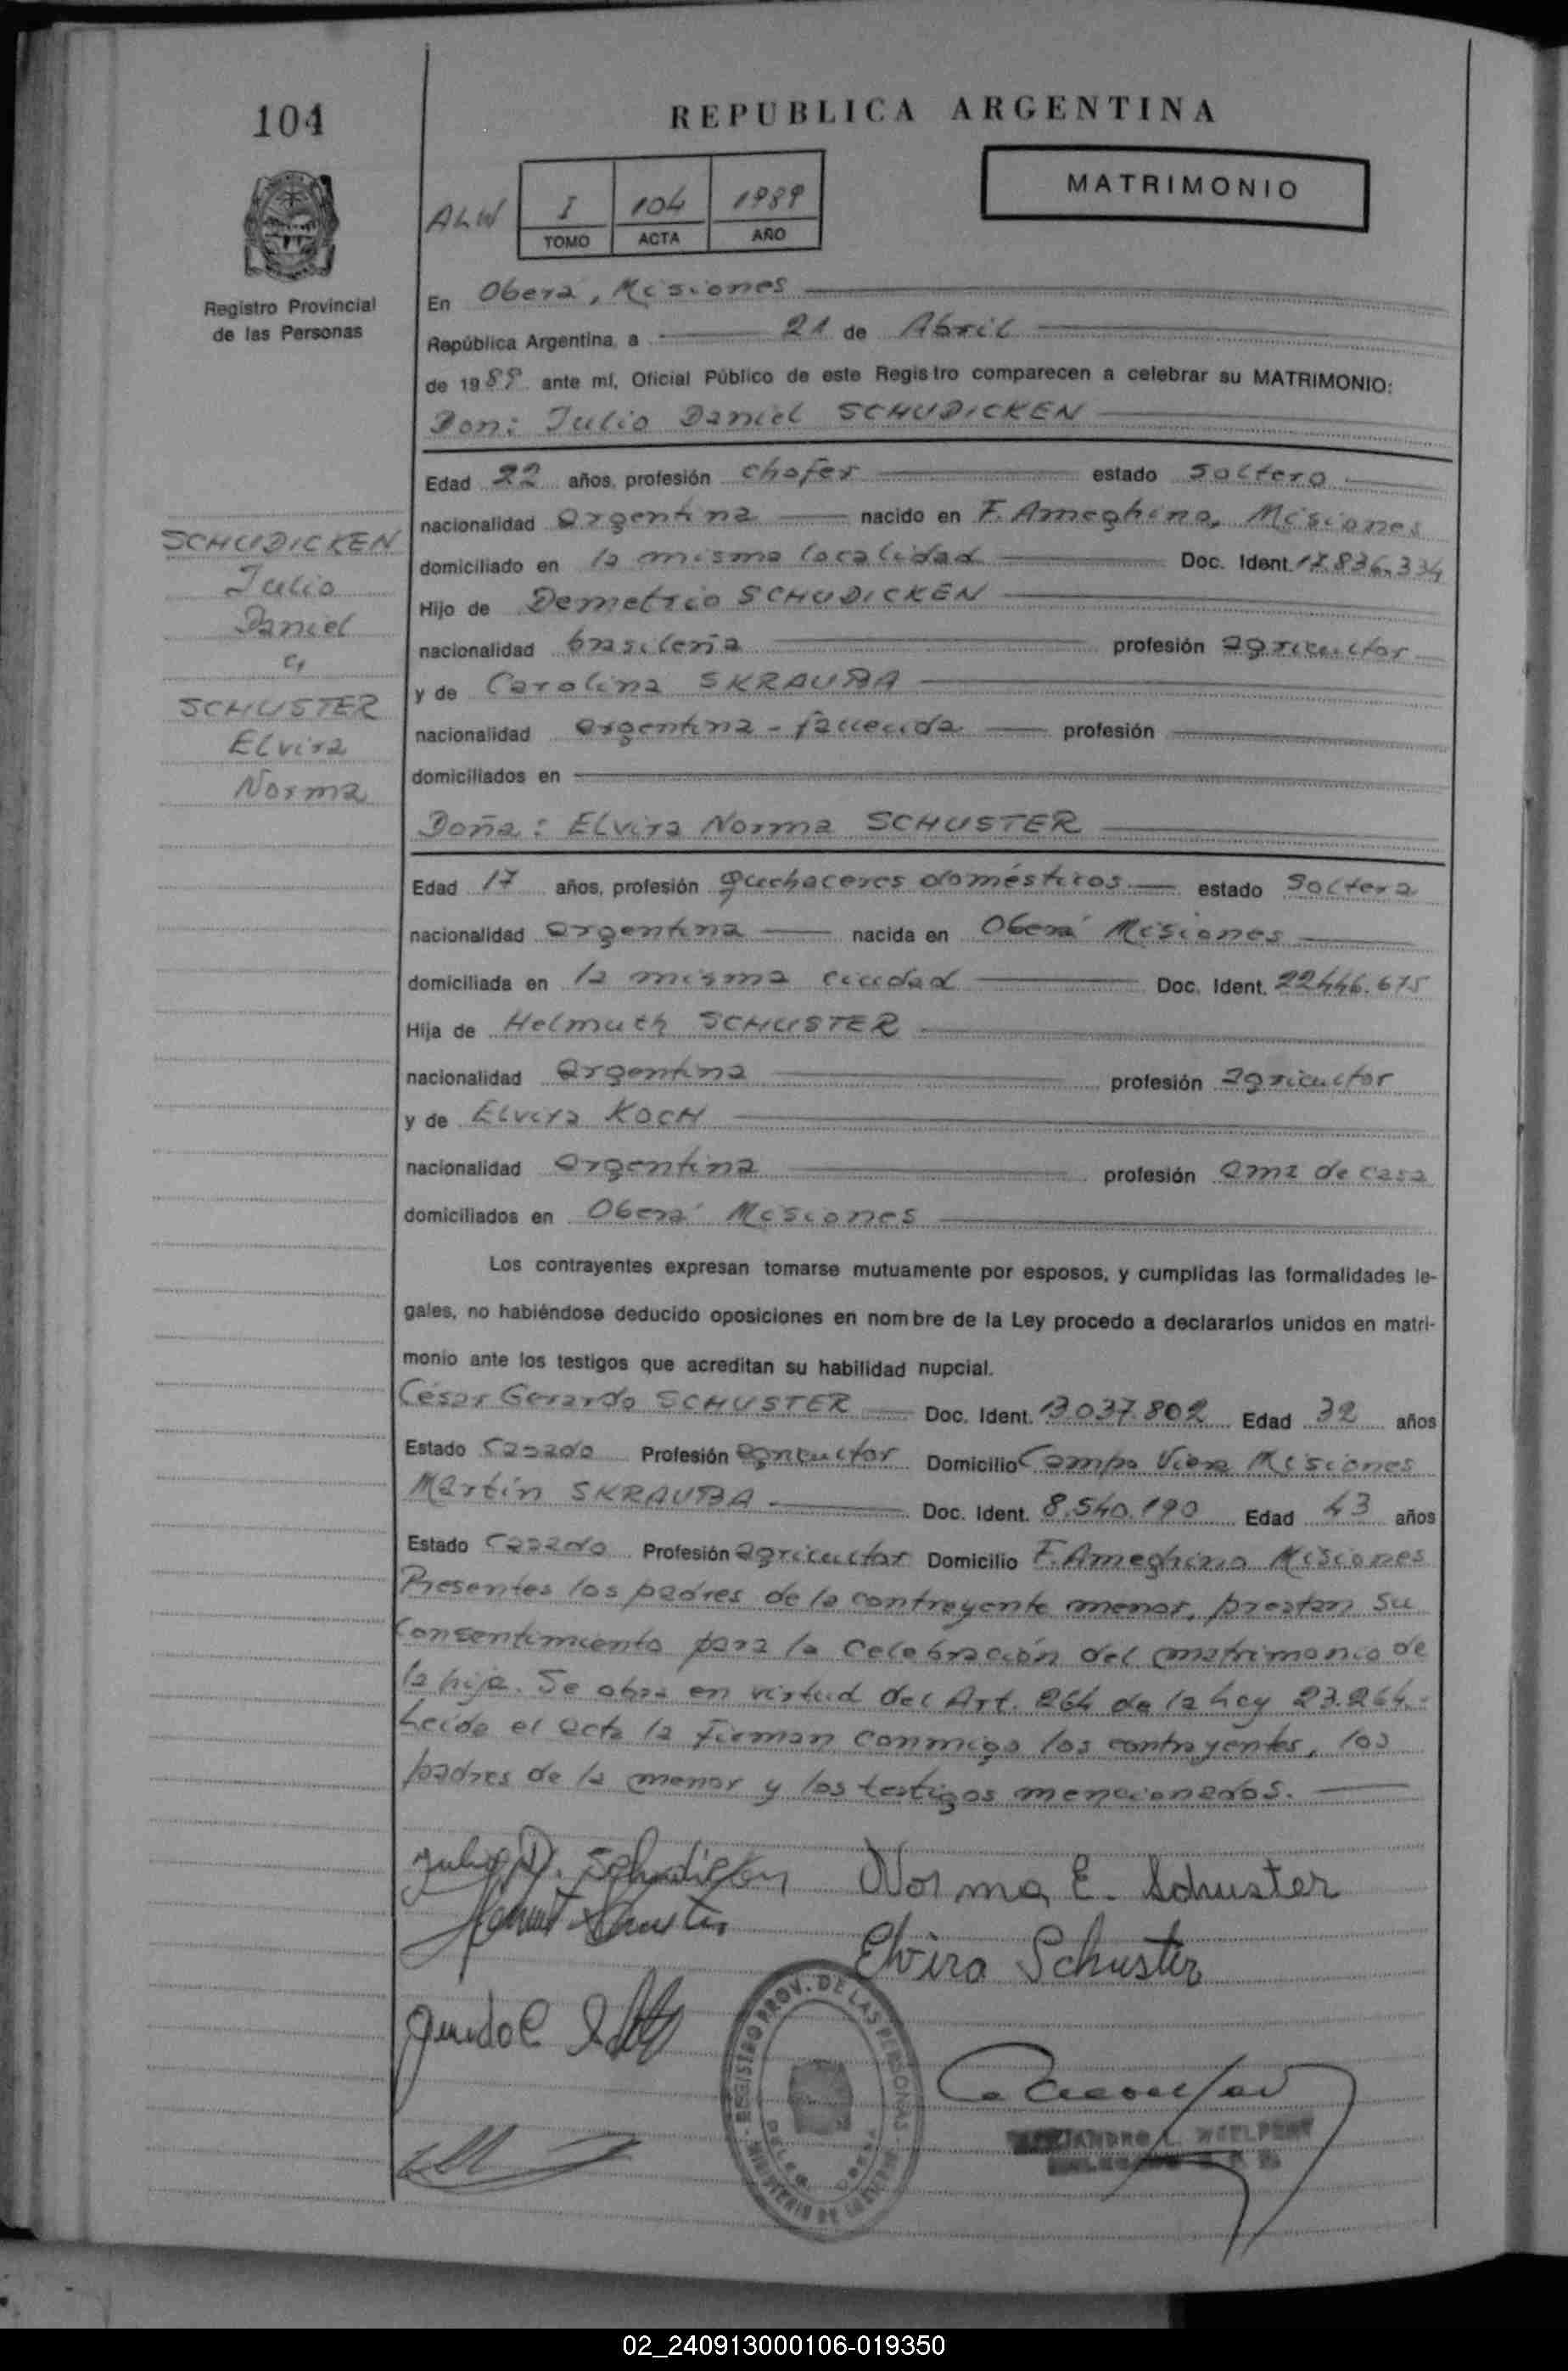 104
REPUBLICA ARGENTINA
MATRIMONIO
ALW
I 104 1989
TOMO ACTA AÑO
Registro Provincial
de las Personas
En Oberá, Misiones
República Argentina, a 21 de Abril
de 1989 ante mí, Oficial Público de este Registro comparecen a celebrar su MATRIMONIO:
Don: Julio Daniel SCHUDICKEN
Edad 22 años, profesión chofer estado soltero
nacionalidad argentina nacido en F. Ameghino, Misiones
domiciliado en la misma localidad Doc. Ident. 17.836.334
Hijo de Demetrio SCHUDICKEN
nacionalidad brasileña profesión agricultor
y de Carolina SKRAUBA
nacionalidad argentina - fallecida profesión
domiciliados en
SCHUDICKEN
Julio
Daniel
c/
SCHUSTER
Elvira
Norma
Doña: Elvira Norma SCHUSTER
Edad 17 años, profesión quehaceres domésticos estado soltera
nacionalidad argentina nacida en Oberá Misiones
domiciliada en la misma ciudad Doc. Ident. 22.446.675
Hija de Helmuth SCHUSTER
nacionalidad argentina profesión agricultor
y de Elvira KOCH
nacionalidad argentina profesión ama de casa
domiciliados en Oberá Misiones
Los contrayentes expresan tomarse mutuamente por esposos, y cumplidas las formalidades le-
gales, no habiéndose deducido oposiciones en nombre de la Ley procedo a declararlos unidos en matri-
monio ante los testigos que acreditan su habilidad nupcial.
César Gerardo SCHUSTER Doc. Ident. 13.037.802 Edad 32 años
Estado casado Profesión agricultor Domicilio Campo Viera Misiones
Martín SKRAUBA Doc. Ident. 8.540.190 Edad 43 años
Estado casado Profesión agricultor Domicilio F. Ameghino Misiones
Presentes los padres de la contrayente menor, prestan su
consentimiento para la celebración del matrimonio de
la hija. Se obra en virtud del Art. 264 de la Ley 23.264.-
Leída el acta la firman conmigo los contrayentes, los
padres de la menor y los testigos mencionados.
Julio D. Schudicken Norma E. Schuster
Elvira Schuster
REGISTRO PROV. DE LAS PERSONAS
02_240913000106-019350